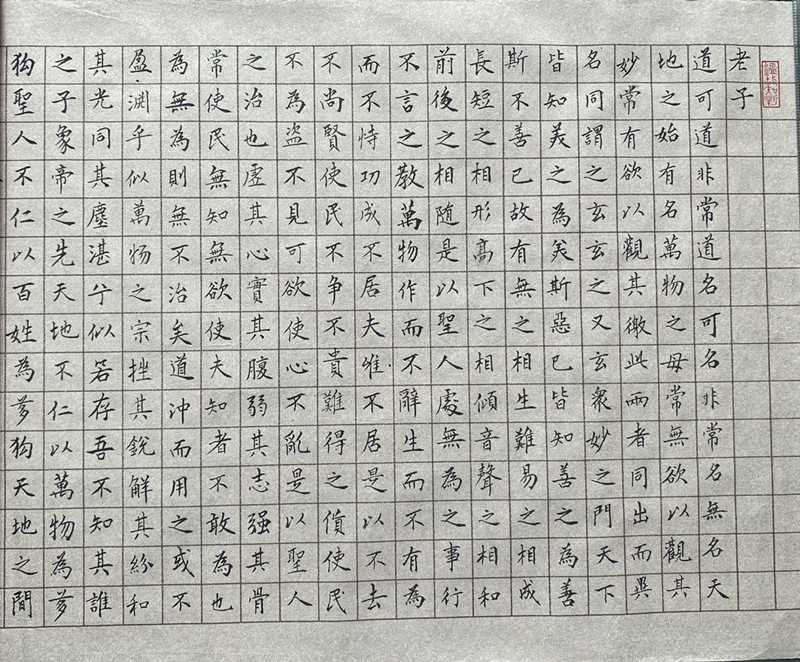 老子
道可道非常道名可名非常名無名天
地之始有名萬物之母常無欲以觀其
妙常有欲以觀其徼此兩者同出而異
名同謂之玄玄之又玄衆妙之門天下
皆知美之為美斯惡已皆知善之為善
斯不善已故有無之相生難易之相成
長短之相形高下之相傾音聲之相和
前後之相隨是以聖人處無為之事行
不言之教萬物作而不辭生而不有為
而不恃功成不居夫唯不居是以不去
不尚賢使民不争不貴難得之貨使民
不為盜不見可欲使心不亂是以聖人
之治也虛其心實其腹弱其志强其骨
常使民無知無欲使夫知者不敢為也
為無為則無不治矣道沖而用之或不
盈淵乎似萬物之宗挫其銳解其紛和
其光同其塵湛兮似若存吾不知其誰
之子象帝之先天地不仁以萬物為芻
狗聖人不仁以百姓為芻狗天地之間